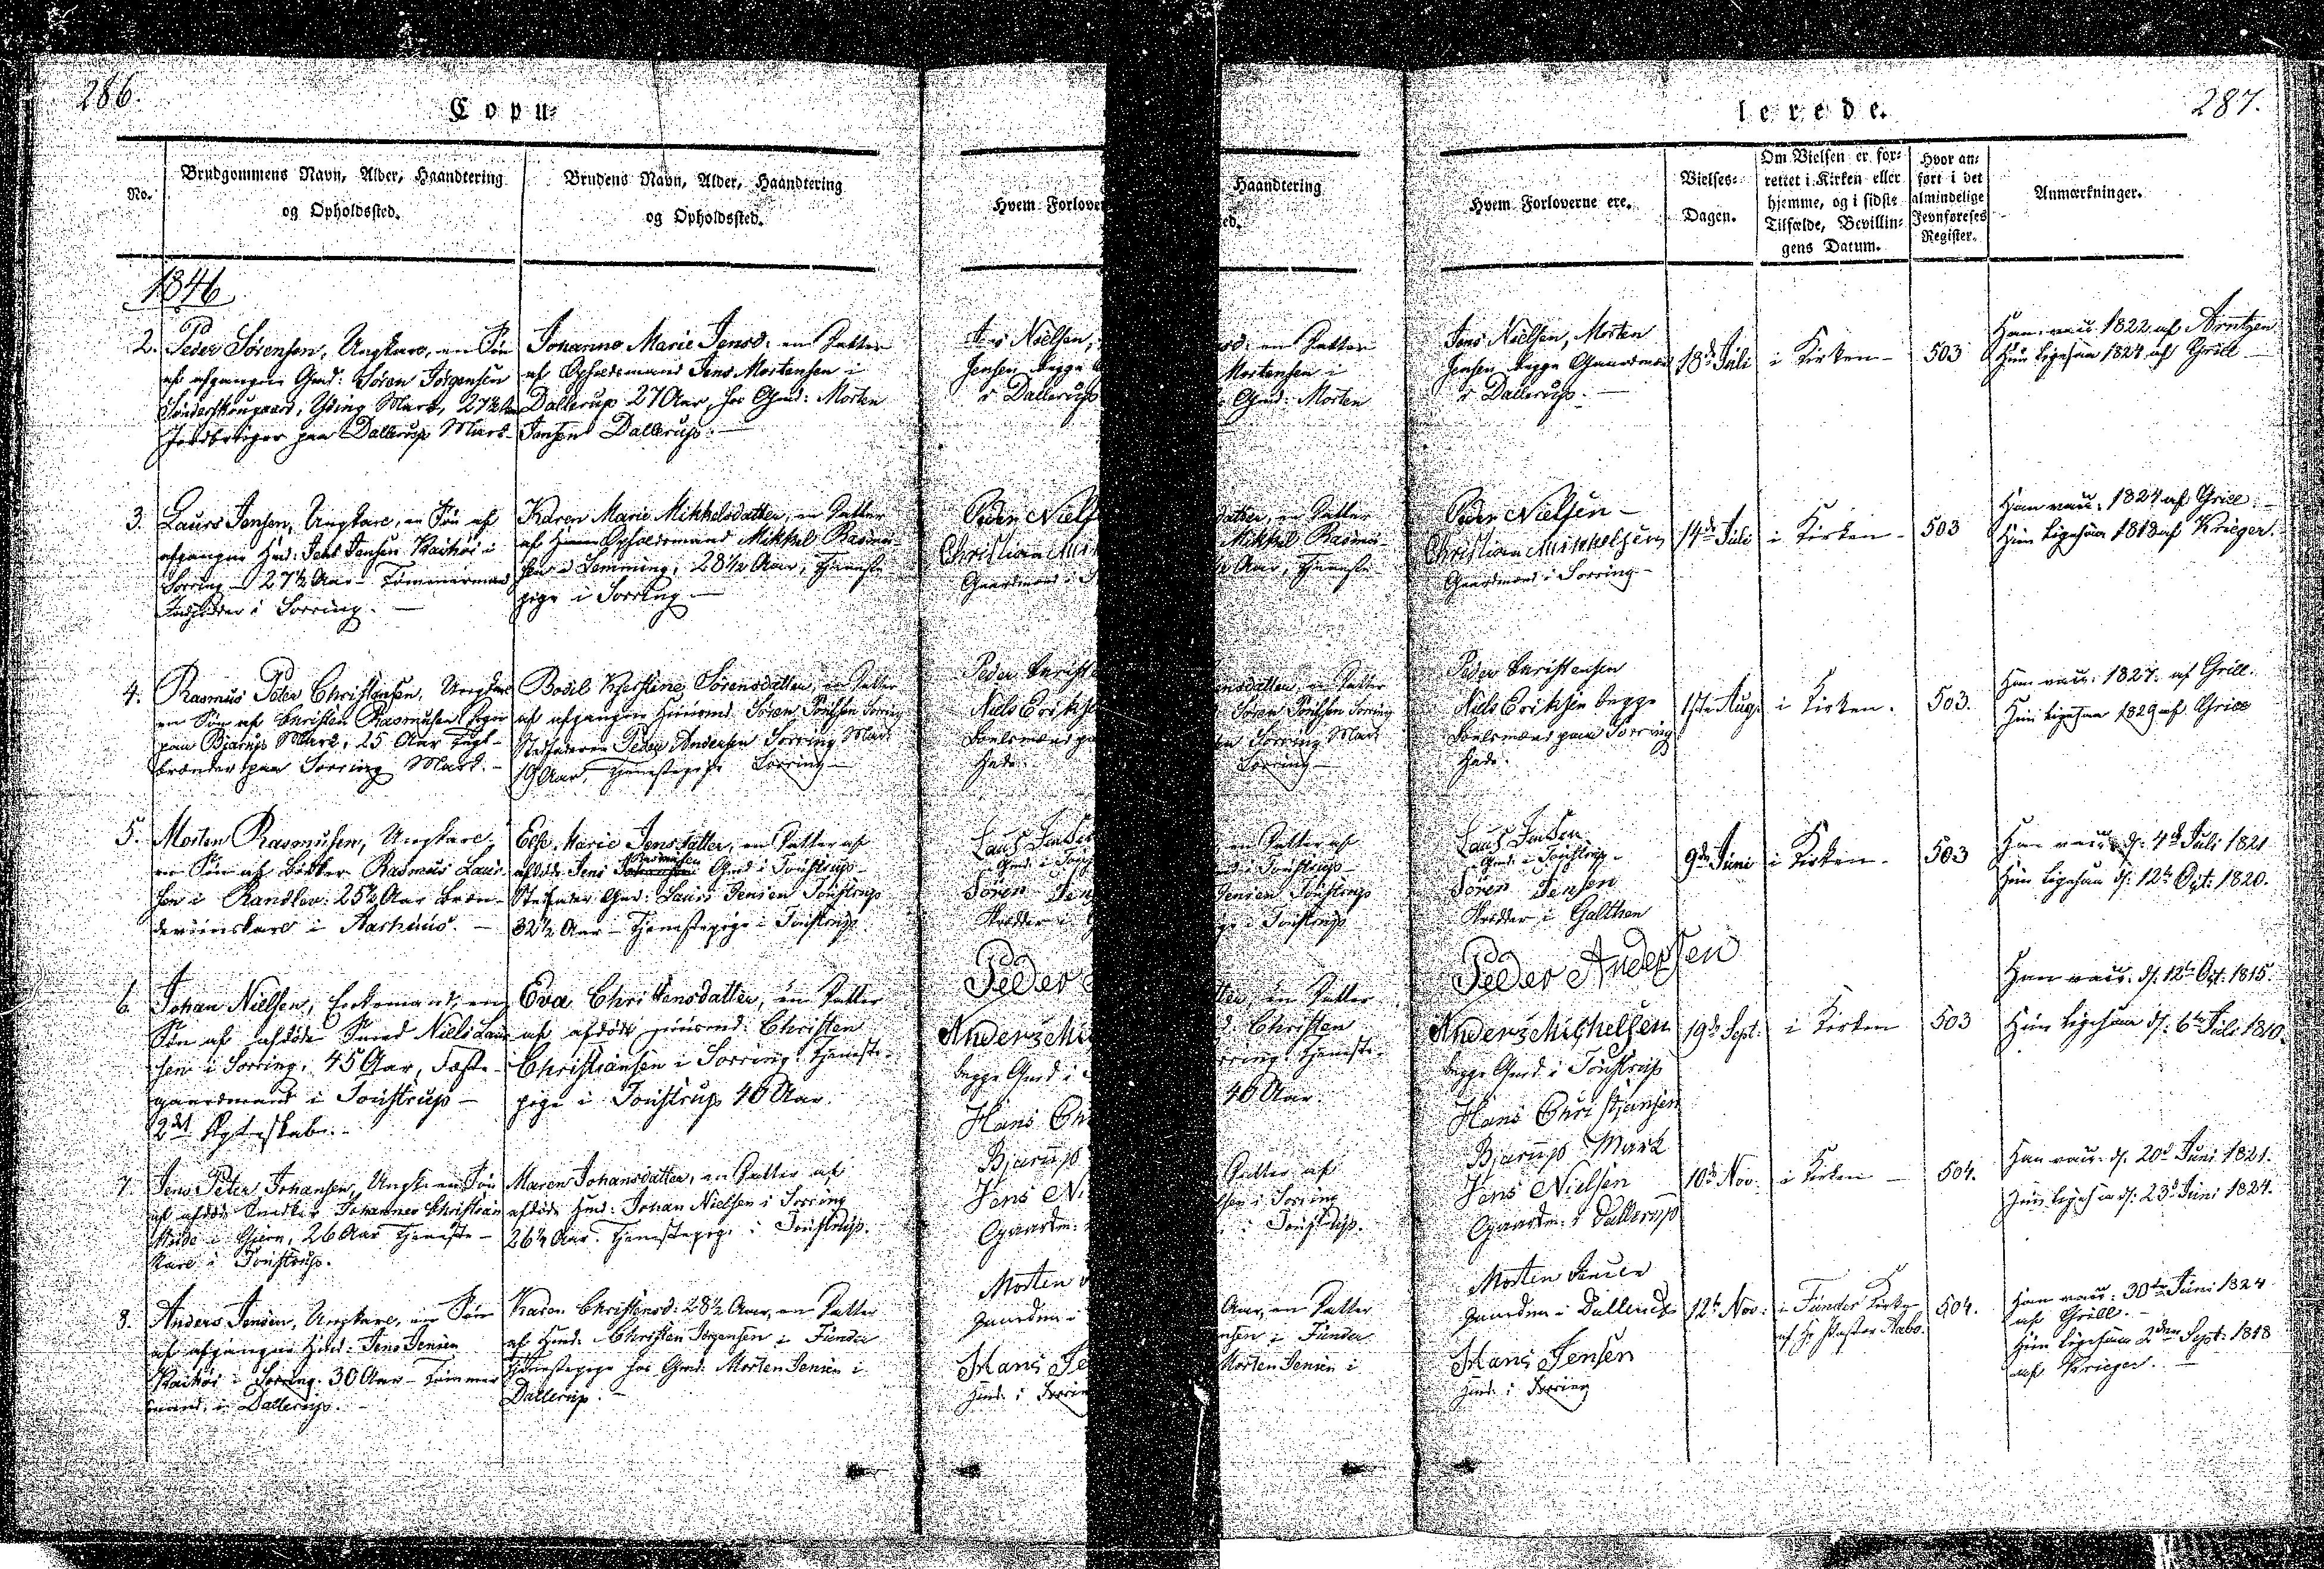 286.
Copu-
No.
Brudgommens Navn, Alder, Haandtering
og Opholdssted.
Brudens Navn, Alder, Haandtering
og Opholdssted.
1846
2. Peder Sørensen, Ungkarl, en Søn
af afgangne Gmd: Søren Jørgensen
Sønderskougaard, Yding Mark, 27½ Aar
paa Dallerup Mark
Johanne Marie Jensd: en Datter
af Opholdsmand Jens Mortensen i
Dallerup 27 Aar, hos Gmd: Morten
Jensen Dallerup.
3. Laurs Jensen, Ungkarl, en Søn af
afgangne Hmd: Jens Jensen Kaihøi i
Sorring 27½ Aar Tømmermand
i Sorring.
Karen Marie Mikkelsdatter, en Datter
af Opholdsmand Mikkel Rasmu-
sen i Lemming, 28½ Aar, Tjeneste-
pige i Sorring
4. Rasmus Peter Christensen, Ungkarl
en Søn af Christen Rasmusen
paa Bjarup Mark, 25 Aar Tegl-
brænder paa Sorring Mark.
Bodil Kjerstine Sørensdatter, en Datter
af afgangne Huusmd. Søren Poulsen Sorring
Stedfaderen Peder Andersen Sorring Mark
19 Aar, Tjenestepige Sorring
5. Morten Rasmusen, Ungkarl,
en Søn af Rasmus Laur-
sen i Randlev: 25½ Aar Bræn-
deriinskarl i Aarhuus.
Else Marie Jensdatter, en Datter af
afdøde Jens Rasmusen Gmd i Toustrup
Stedfader Gmd: Laurs Jensen Toustrup
32½ Aar Tjenestepige i Toustrup
6. Johan Nielsen, Enkemand, en
Søn af afdøde Smed Niels Laur-
sen i Sorring, 45 Aar, Fæste-
gaardmand i Toustrup
2det Ægteskab.
Eva Christensdatter, en Datter
af afdøde Huusmd: Christen
Christiansen i Sorring. Tjeneste-
pige i Toustrup 40 Aar.
7. Jens Peter Johansen, Ungk: en Søn
af afdøde Snedker Johannes Christian
i Gjern, 26 Aar Tjeneste-
karl i Toustrup.
Maren Johansdatter, en Datter af
afdøde Hmd: Johan Nielsen i Sorring
26½ Aar. Tjenestepige i Toustrup.
8. Anders Jensen, Ungkarl, en Søn
af afgangne Hmd: Jens Jensen
Kaihøi i Sorring. 30 Aar Tømmer
mand i Dallerup.
Karen Christensd: 28½ Aar, en Datter
af Hmd: Christen Jørgensen i Funder
Tjenestepige hos Gmd: Morten Jensen i
Dallerup.
lerede.
287.
Hvem Forloverne ere.
Vielses-
Dagen.
Om Vielsen er for-
rettet i Kirken eller
hjemme, og i sidste
Tilfælde, Bevillin-
gens Datum.
Hvor an-
ført i det
almindelige
Jevnførelses
Register.
Anmærkninger.
Jens Nielsen, Morten
Jensen begge Gaardmænd
i Dallerup.
18de Juli
i Kirken
503
Han vacc: 1822 af Arntzen
Hun ligesaa 1824 af Grill
Peder Nielsen
Christian Mikkelsen
Gaardmænd i Sorring
14de Juli
i Kirken
503
Han vacc: 1824 af Grill
Hun ligesaa 1818 af Krieger.
Peder Christensen
Niels Eriksen begge
Boelsmænd paa Sorring
Hede.
1ste Aug.
i Kirken.
503.
Han vacc: 1827. af Grill.
Hun ligesaa 1829 af Grill
Laurs Jensen
Gmd: i Toustrup
Søren Jensen
Skrædder i Galthen
9de Juni
i Kirken
503
Han vacc d: 4de Juli 1821
Hun ligesaa d: 12te Oct: 1820.
Peder Andersen
Anders Michelsen
begge Gmd i Toustrup
19de Sept.
i Kirken
503
Han vacc: d: 12te Oct: 1815.
Hun ligesaa d: 6te Juli 1810.
Hans Christjansen
Bjarup Mark
Jens Nielsen
Gaardm: i Dallerup
10de Nov:
i Kirken
504.
Han vacc: d: 20de Juni 1821.
Hun ligesaa d: 23de Juni 1824.
Morten Jensen
Gaardm: i Dallerup
Hans Jensen
Hmd: i Sorring
12te Nov:
i Funder Kirke
af Hr Pastor Aabo.
504.
Han vacc: 30te Juni 1824
af Grill.
Hun ligesaa 2den Sept: 1818
af Krieger.